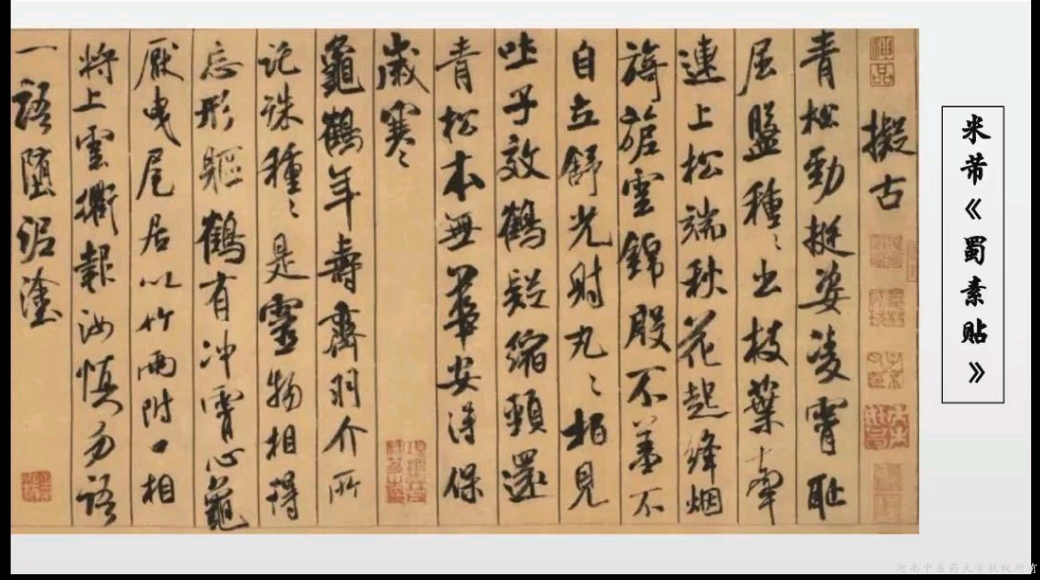 米芾《蜀素贴》
擬古
青松勁挺姿凌霄耻
屈盤種〻出枝葉牽
連上松端秋花起絳烟
旖旎雲錦殷不羞不
自立舒光射丸〻柏見
吐子效鶴疑縮頸還
青松本無華安得保
歲寒〻
龜鶴年壽齊羽介所
託殊種〻是靈物相得
忘形軀鶴有冲霄心龜
厭曳尾居以竹兩附口相
將上雲衢報汝慎勿語
一語墮泥塗
河南中医药大学版权所有